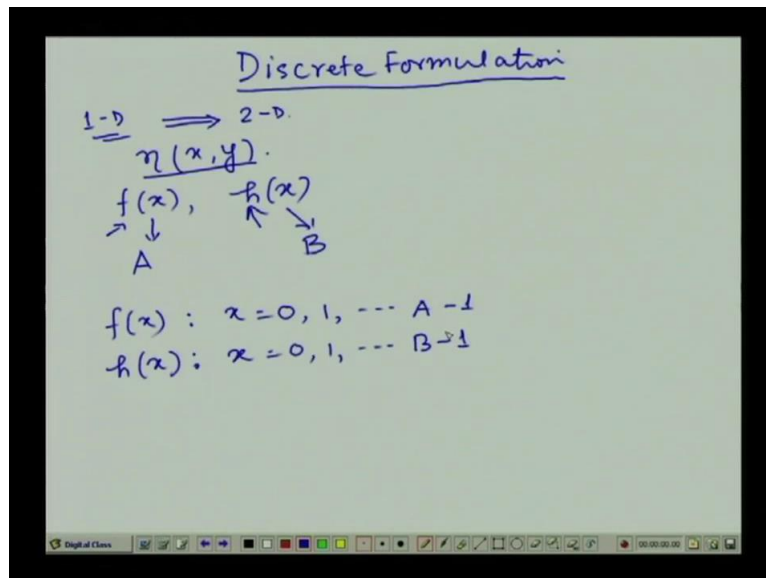 Discrete Formulation
1-D ⟹ 2-D.
η(x,y).
f(x), h(x)
A B
f(x) : x = 0, 1, --- A-1
h(x) : x = 0, 1, --- B-1
Digital Class 00:00:00.00